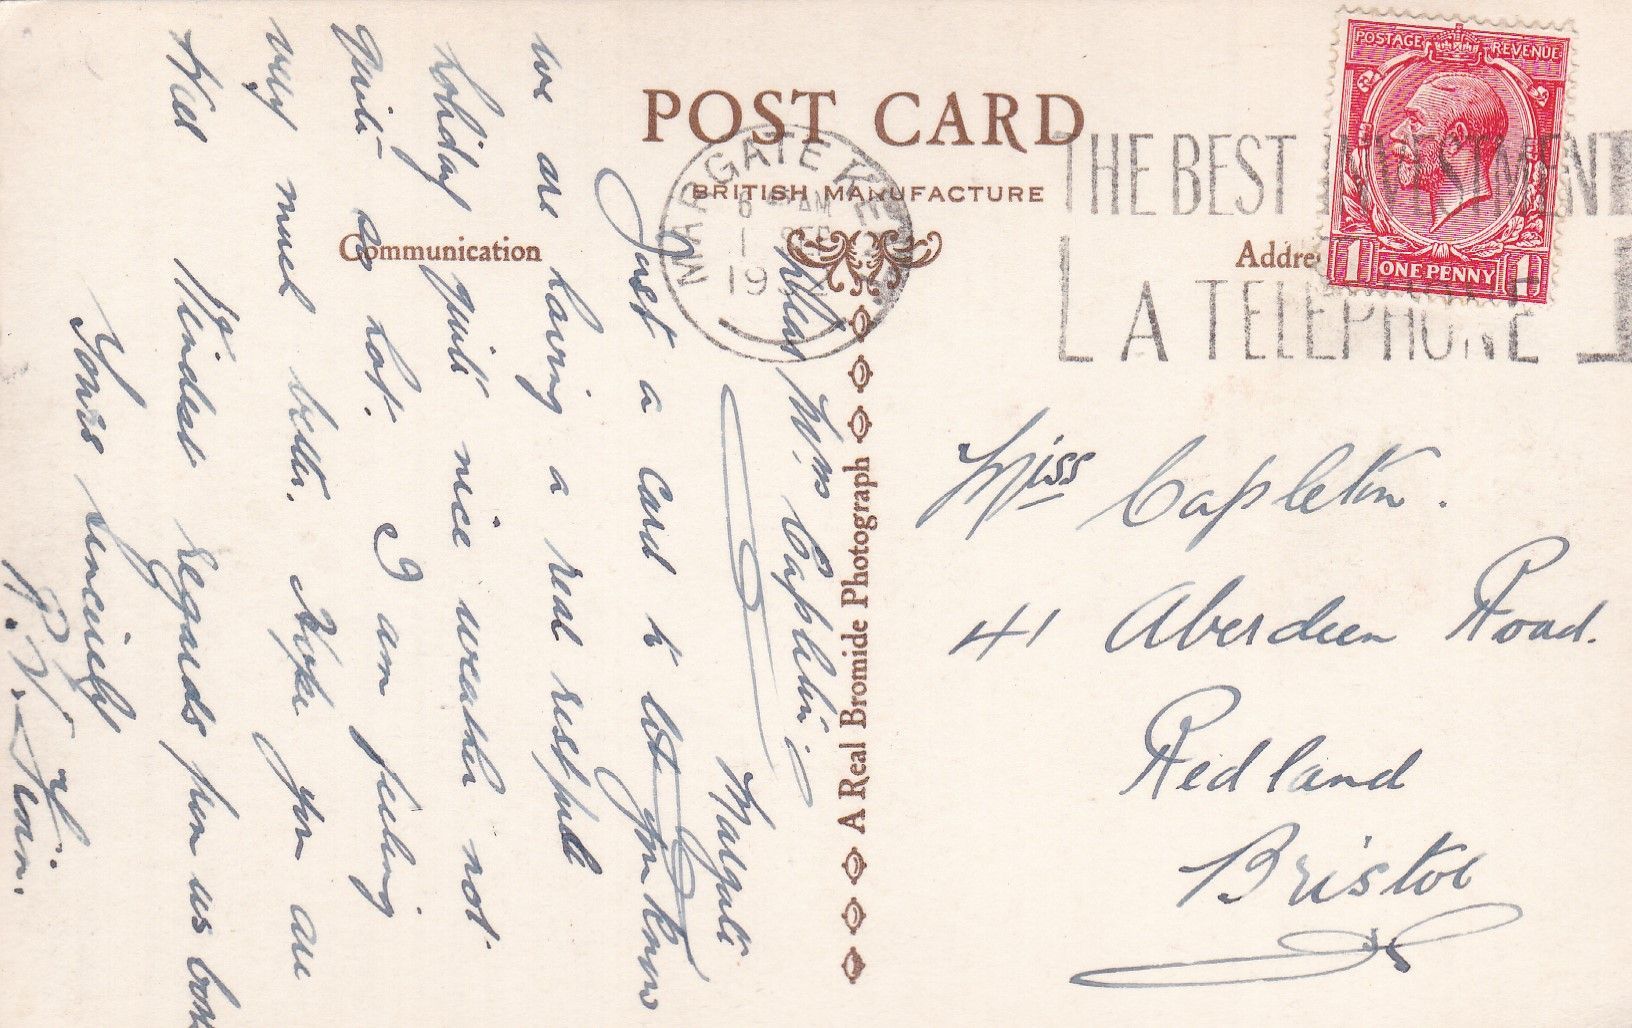 POST CARD
BRITISH MANUFACTURE
Communication
Addre
A Real Bromide Photograph
POSTAGE REVENUE
1 ONE PENNY 1
MARGATE KE
6 AM
1 SEP
19
THE BEST INVESTMENT
A TELEPHONE
Miss Capleton.
41 Aberdeen Road.
Redland
Bristol
Margate
Dear Mrs Capleton
Just a card to let you know
we are having a real restful
holiday quite nice weather not
quite so hot. I am feeling
very much better. Hope you are
Well Kindest regards from us both
Yours sincerely